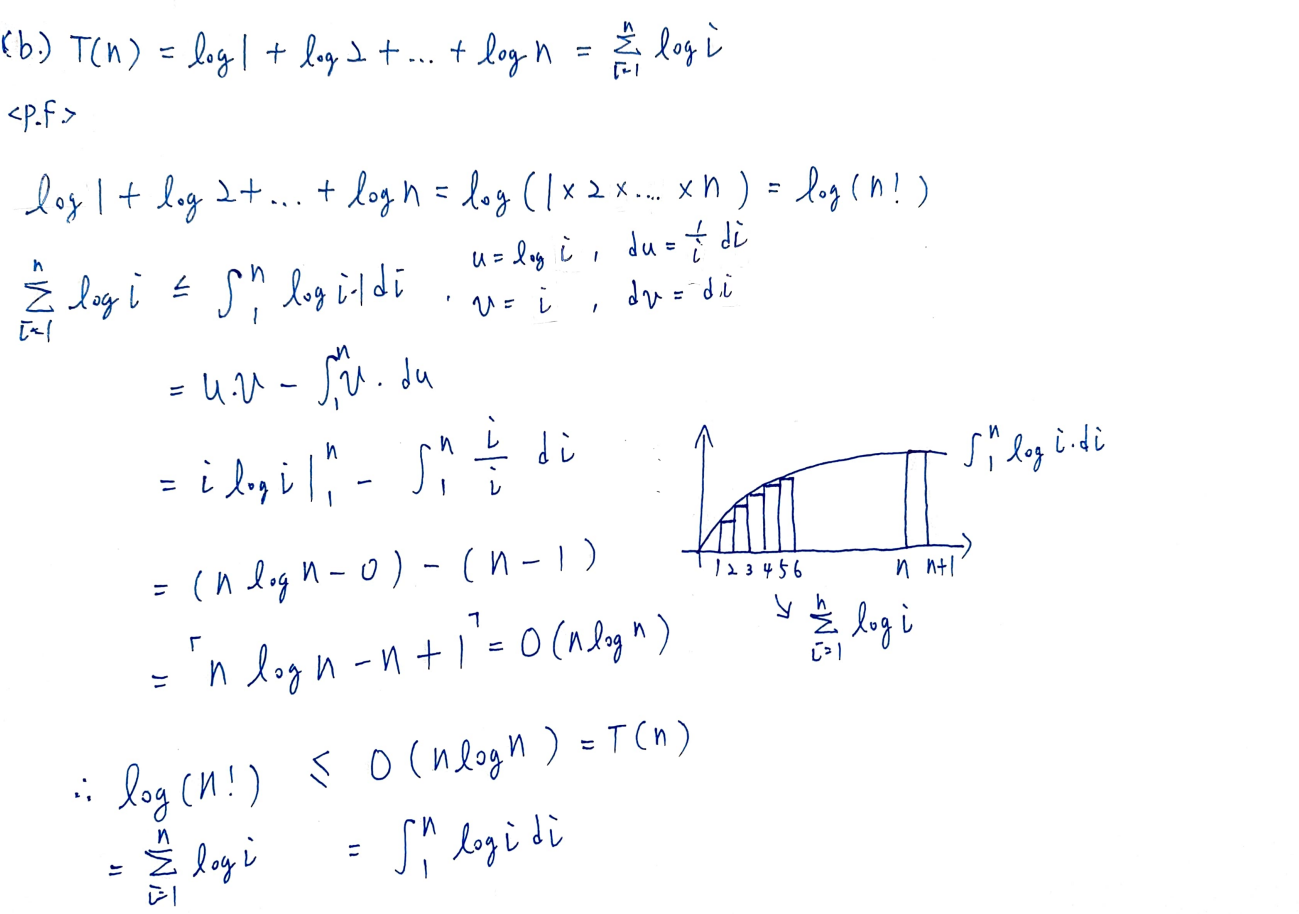 (b.) T(n) = log 1 + log 2 + ... + log n = Σ_{i=1}^{n} log i
<p.f>
log 1 + log 2 + ... + log n = log (1 × 2 × .... × n) = log (n!)
Σ_{i=1}^{n} log i ≤ ∫_1^n log i · 1 di , u = log i , du = 1/i di
v = i , dv = di
= u.v - ∫_1^n v . du
= i log i |_1^n - ∫_1^n i/i di
= (n log n - 0) - (n - 1)
= 「n log n - n + 1」 = O(n log n)
∫_1^n log i . di
1 2 3 4 5 6 n n+1
↘ Σ_{i=1}^{n} log i
∴ log (n!) ≤ O(n log n) = T(n)
= Σ_{i=1}^{n} log i = ∫_1^n log i di